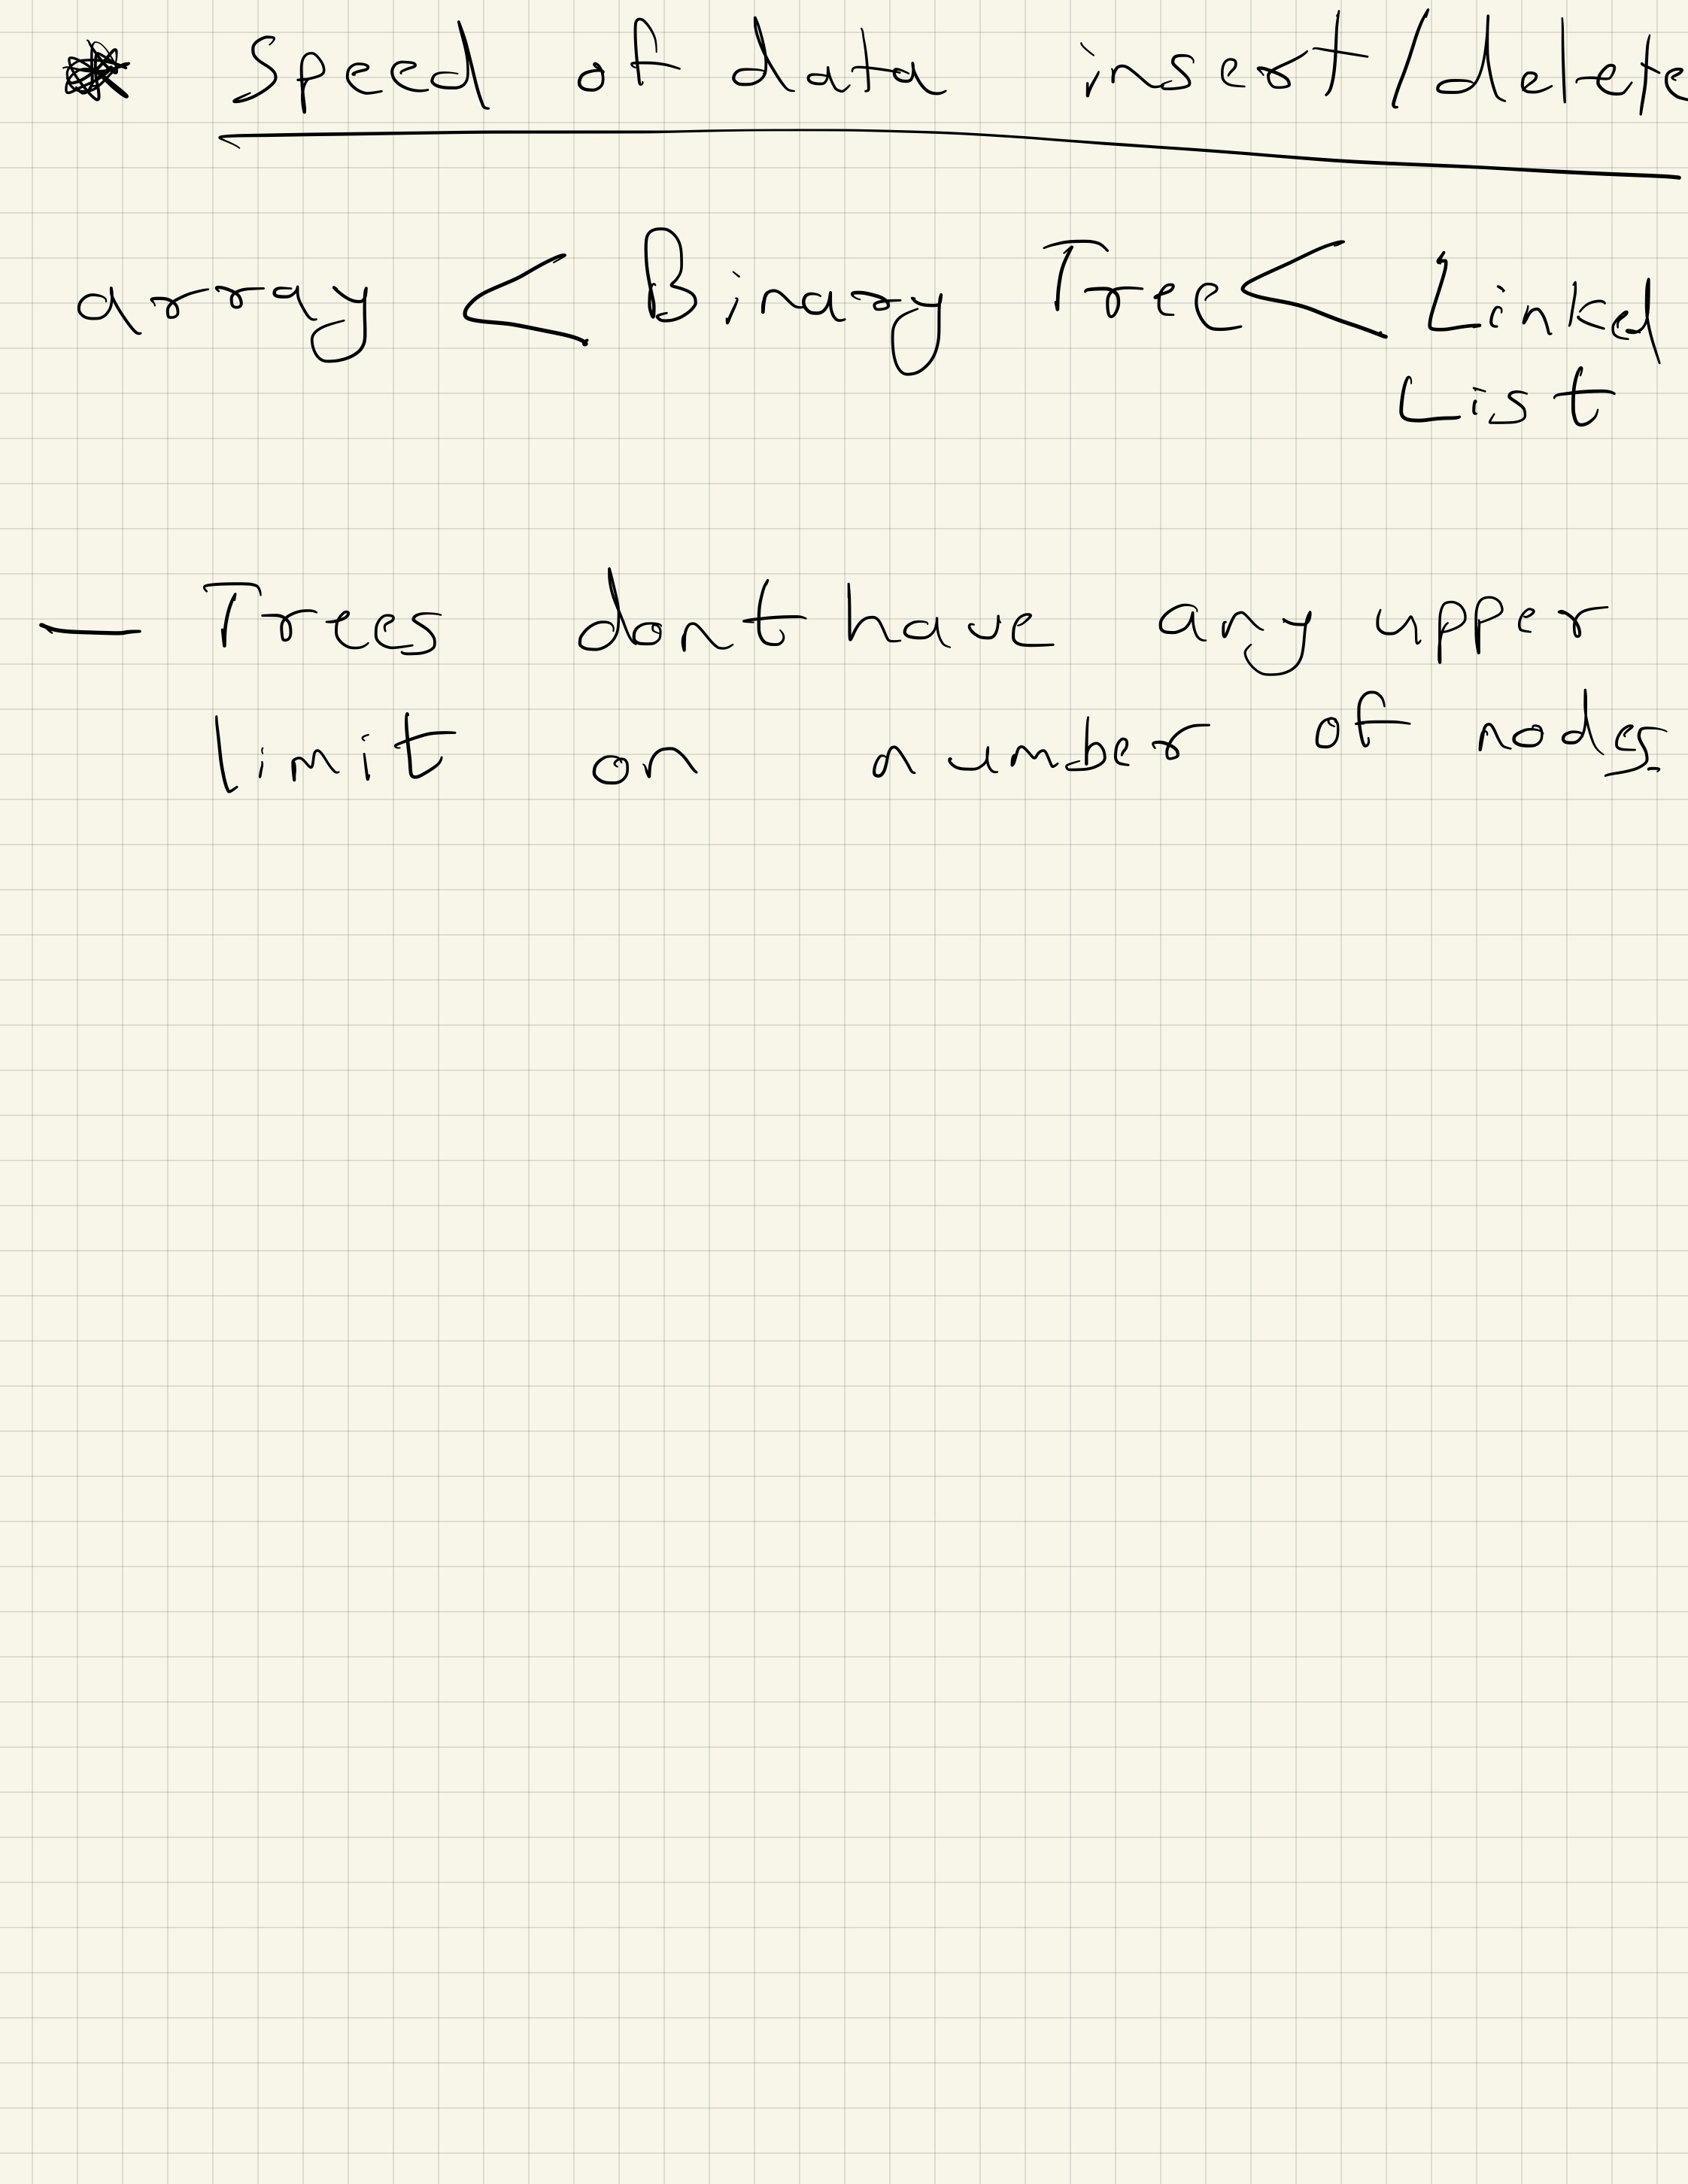 * Speed of data insert/delete
array < Binary Tree < Linked
List
— Trees dont have any upper
limit on number of nodes